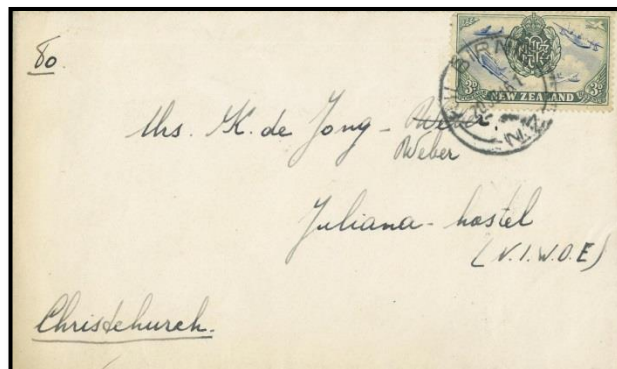 80.
3D NEW ZEALAND 3D
Mrs. K. de Jong - Weber.
Weber
Juliana - hostel
(V.I.W.O.E)
Christchurch.